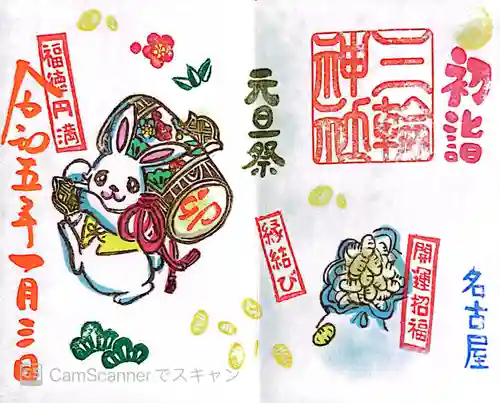 初詣
三輪
神社
元旦祭
名古屋
開運招福
縁結び
卯
福徳円満
令和五年一月三日
CS CamScannerでスキャン